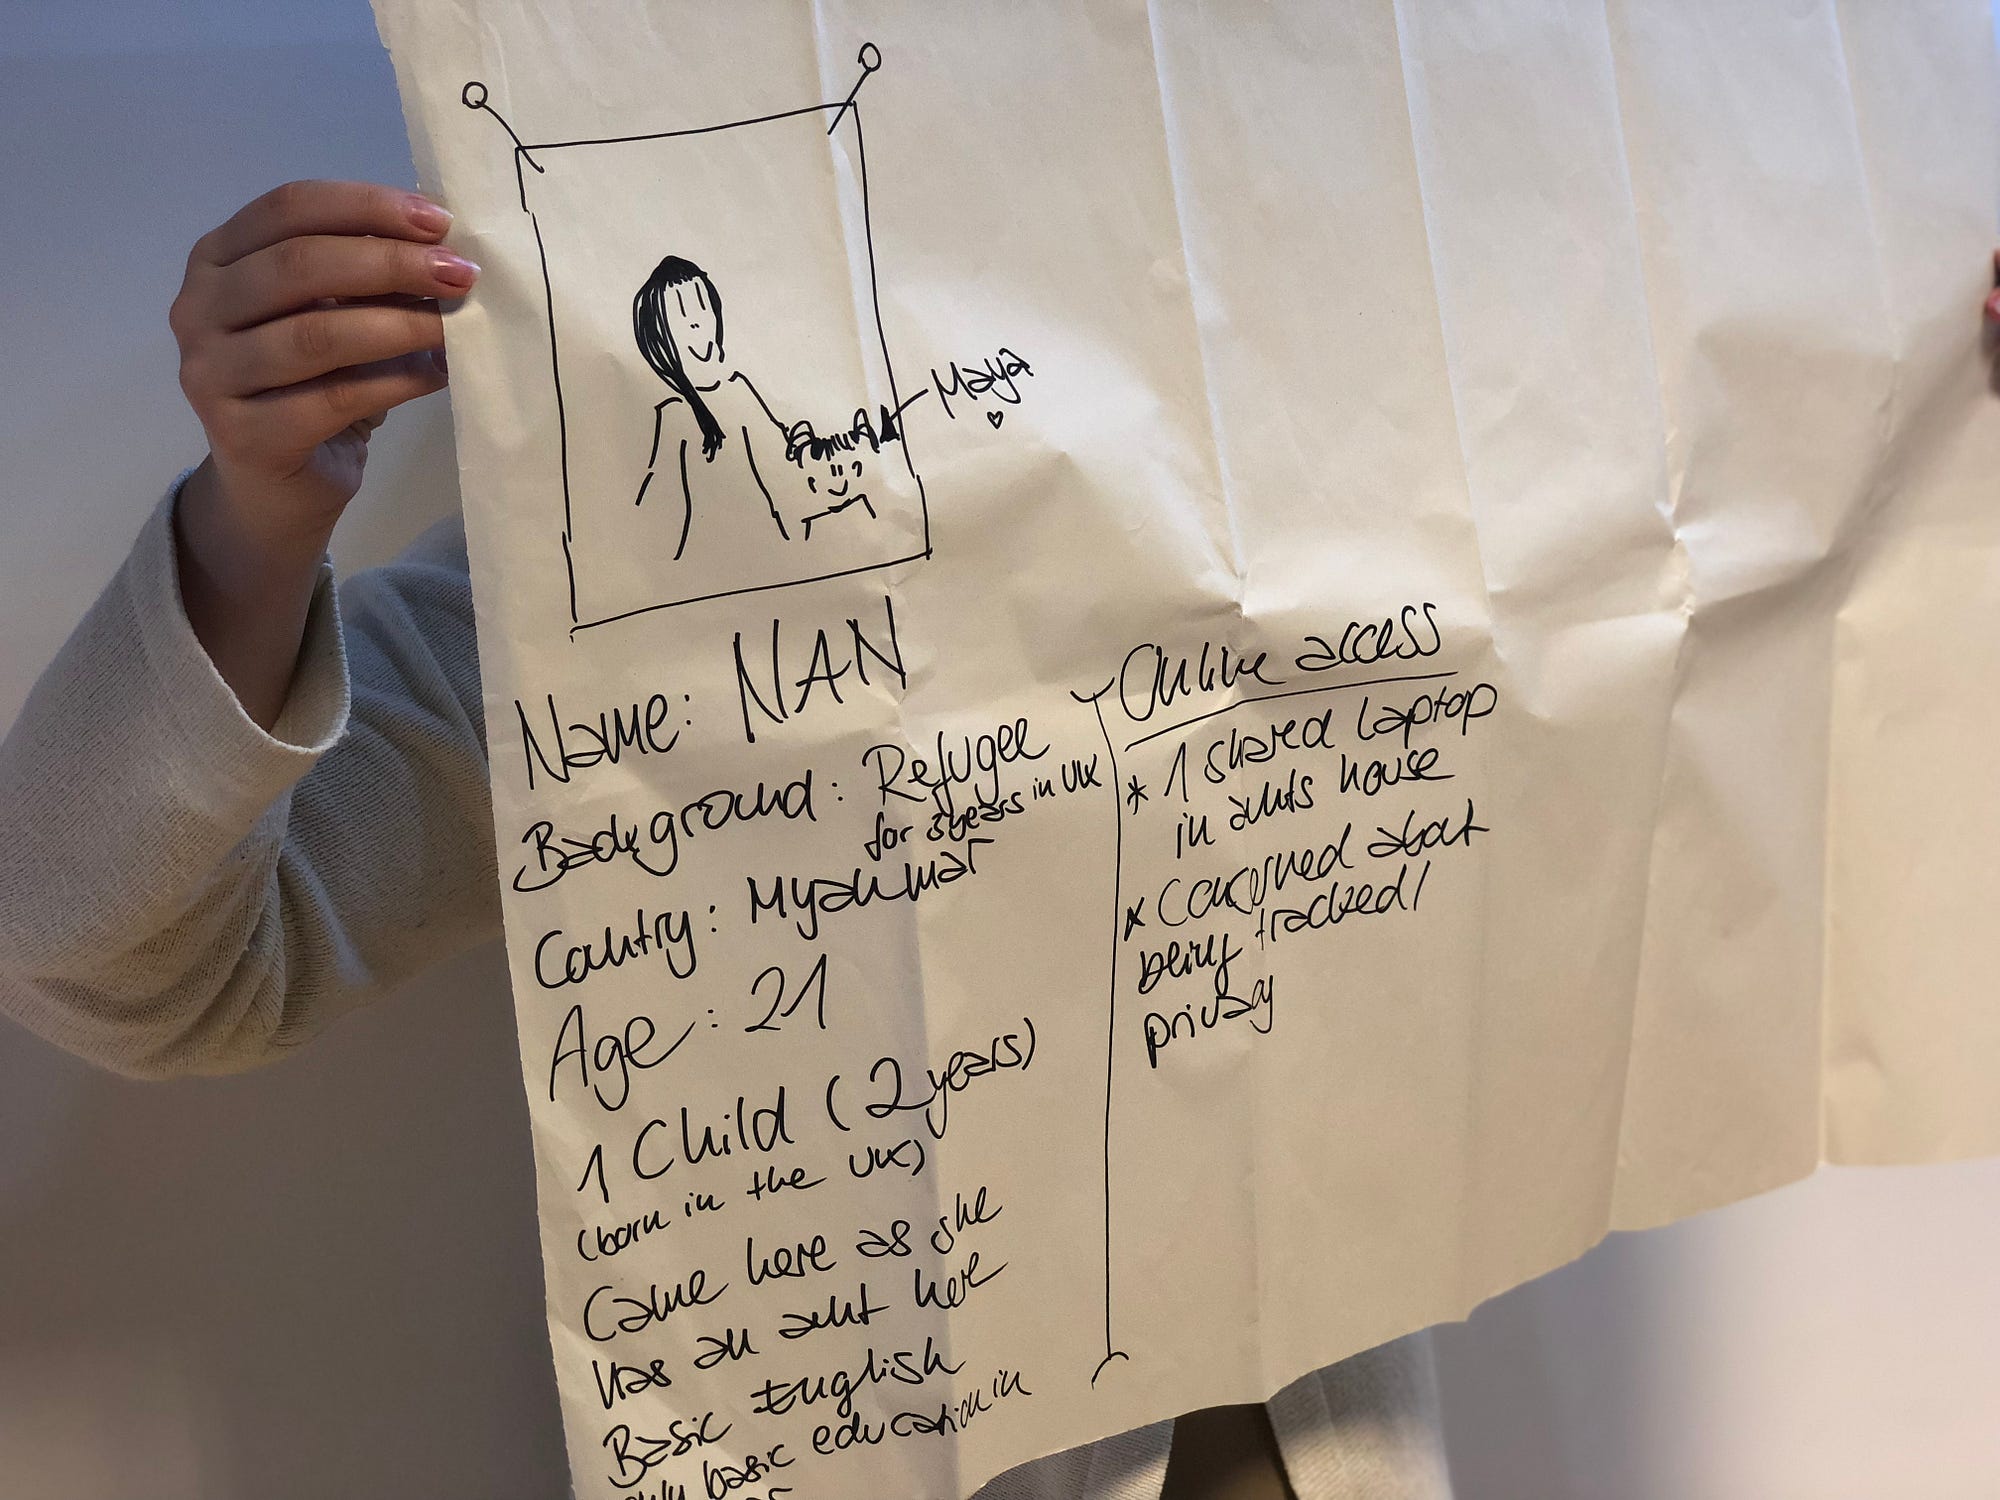 Maya
Name: NAN
Background: Refugee
for 3 years in UK
Country: Myanmar
Age: 21
1 Child (2 years)
(born in the UK)
Came here as she
has an aunt here
Basic English
only basic education in
Online access
* 1 shared laptop
in aunts house
* Concerned about
being tracked/
privacy